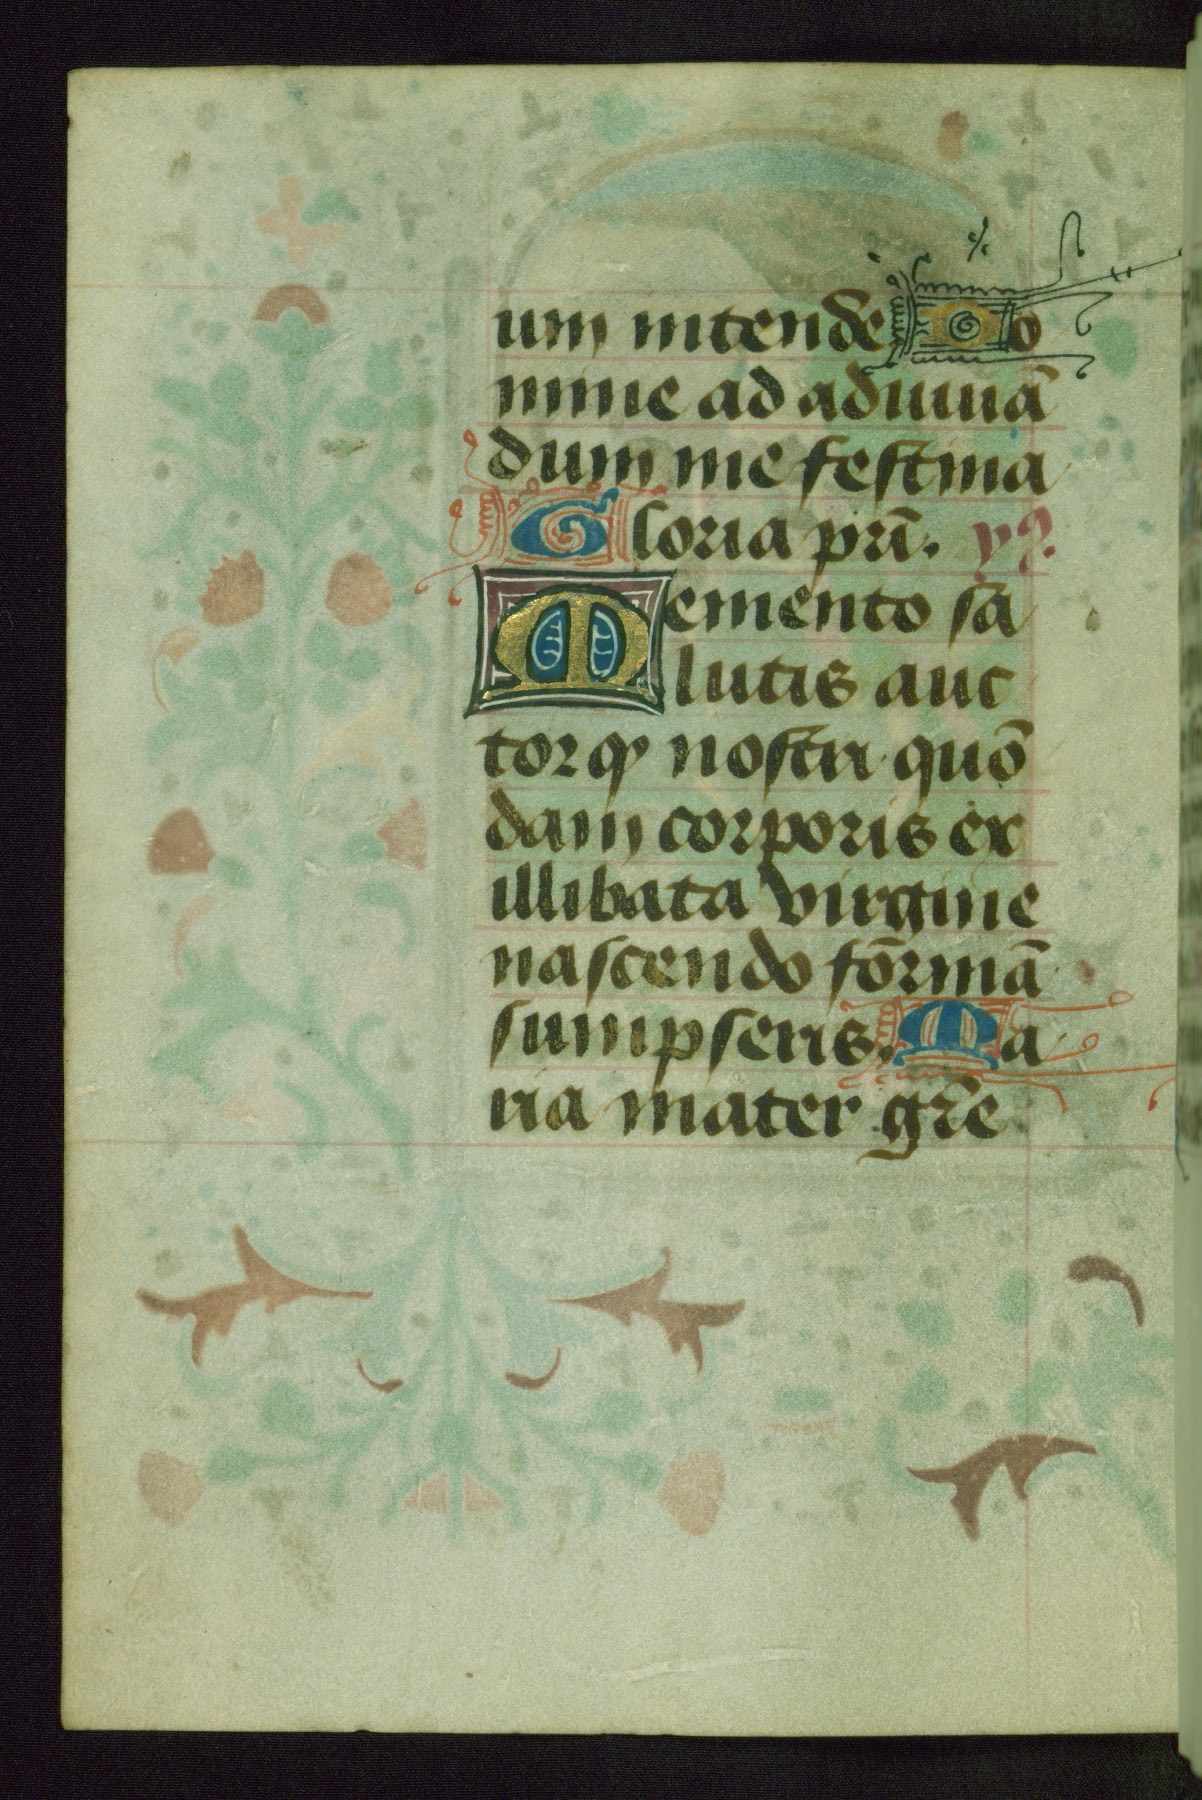 um intende Do
mine ad adiuuā
dum me festina
Gloria pr̄i. ym̄.
Memento sa
lutis auc
torqꝫ nostri quō
dam corporis ex
illibata virgine
nascendo formā
sumpseris. Ma
ria mater gr̄e